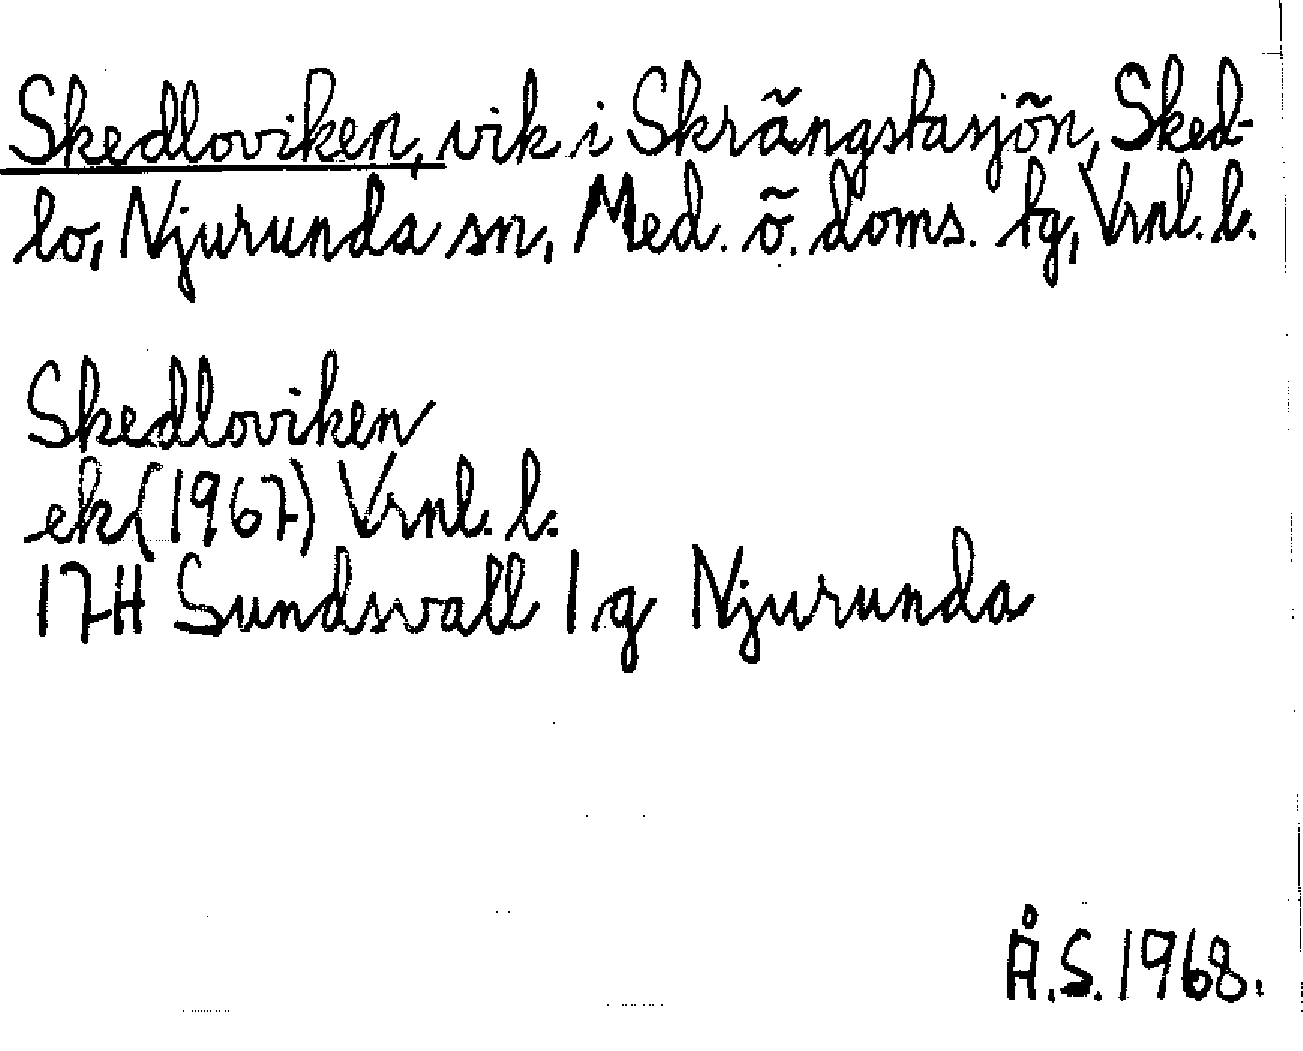 Skedloviken, vik i Skrängstasjön, Sked-
lo, Njurunda sn, Med. ö. doms. tg, Vrnl. l.
Skedloviken
ek (1967) Vrnl. l.
17H Sundsvall 1 g Njurunda
Å.S. 1968.